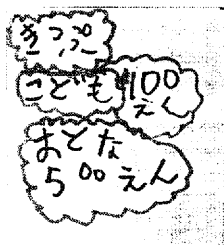 きっぷ
こども 100
えん
おとな
500えん